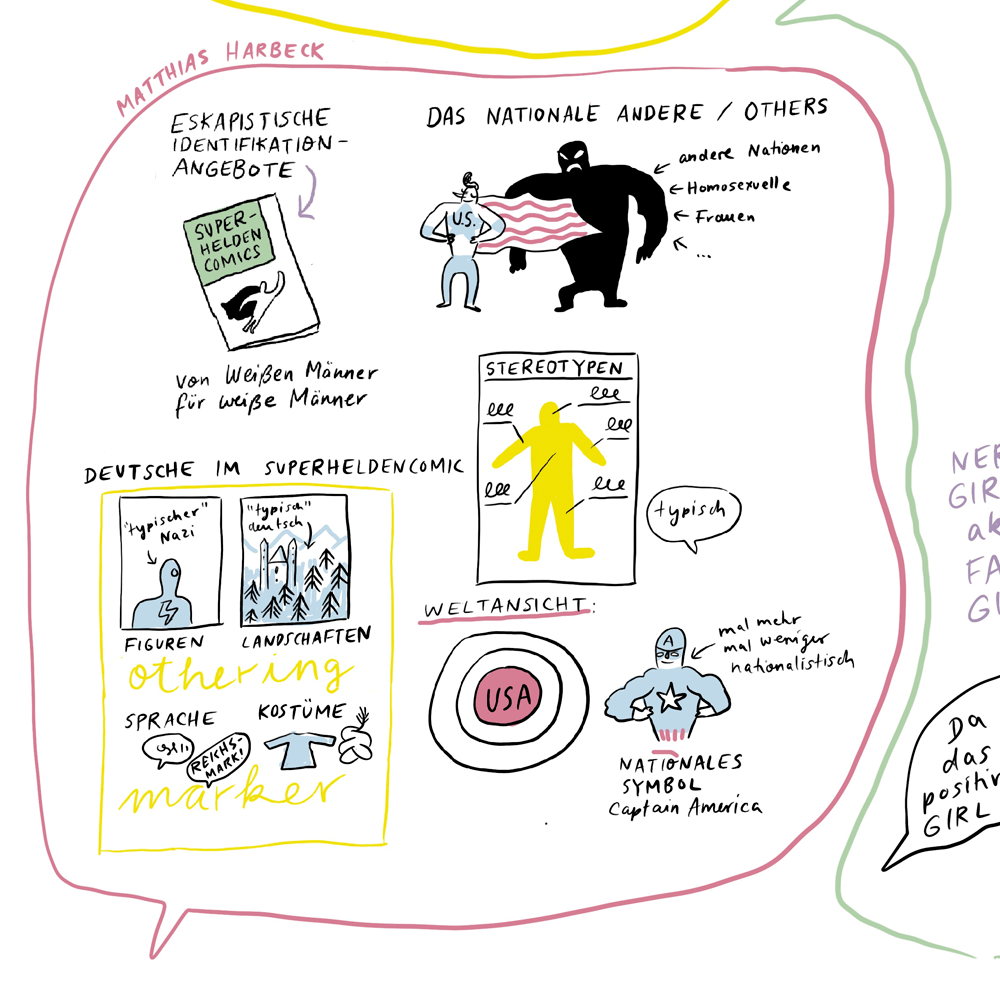 MATTHIAS HARBECK
ESKAPISTISCHE
IDENTIFIKATION-
ANGEBOTE
SUPER-
HELDEN
COMICS
von Weißen Männer
für weiße Männer
DAS NATIONALE ANDERE / OTHERS
U.S.
andere Nationen
Homosexuelle
Frauen
...
STEREOTYPEN
typisch
DEUTSCHE IM SUPERHELDENCOMIC
"typischer"
Nazi
"typisch"
deutsch
FIGUREN
LANDSCHAFTEN
othering
SPRACHE
KOSTÜME
REICHS-
MARK!
marker
WELTANSICHT:
USA
A
mal mehr
mal weniger
nationalistisch
NATIONALES
SYMBOL
Captain America
GIR
FA
Da
das
GIRL